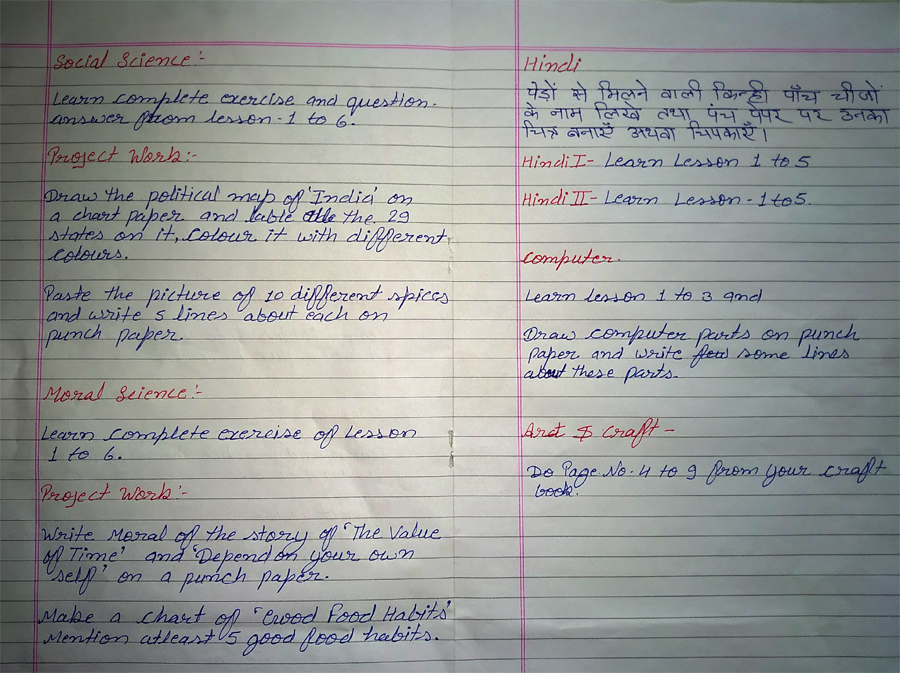 Social Science :-
Learn complete exercise and question-
answer from lesson-1 to 6.
Project Work:-
Draw the political map of 'India' on
a chart paper and lable the 29
states on it, colour it with different
colours.
Paste the picture of 10 different spices
and write 5 lines about each on
punch paper.
Moral Science :-
Learn complete exercise of Lesson
1 to 6.
Project Work :-
Write Moral of the story of 'The Value
of Time' and 'Depend on your own
self' on a punch paper.
Make a chart of 'Good Food Habits'
Mention atleast 5 good food habits.
Hindi
पेड़ों से मिलने वाली किन्ही पाँच चीजों
के नाम लिखे तथा पंच पेपर पर उनका
चित्र बनाएँ अथवा चिपकाएँ।
Hindi I - Learn Lesson 1 to 5
Hindi II - Learn Lesson - 1 to 5.
Computer.
Learn lesson 1 to 3 and
Draw computer parts on punch
paper and write some lines
about these parts.
Arat & Craft -
Do Page No. 4 to 9 from your craft
book.